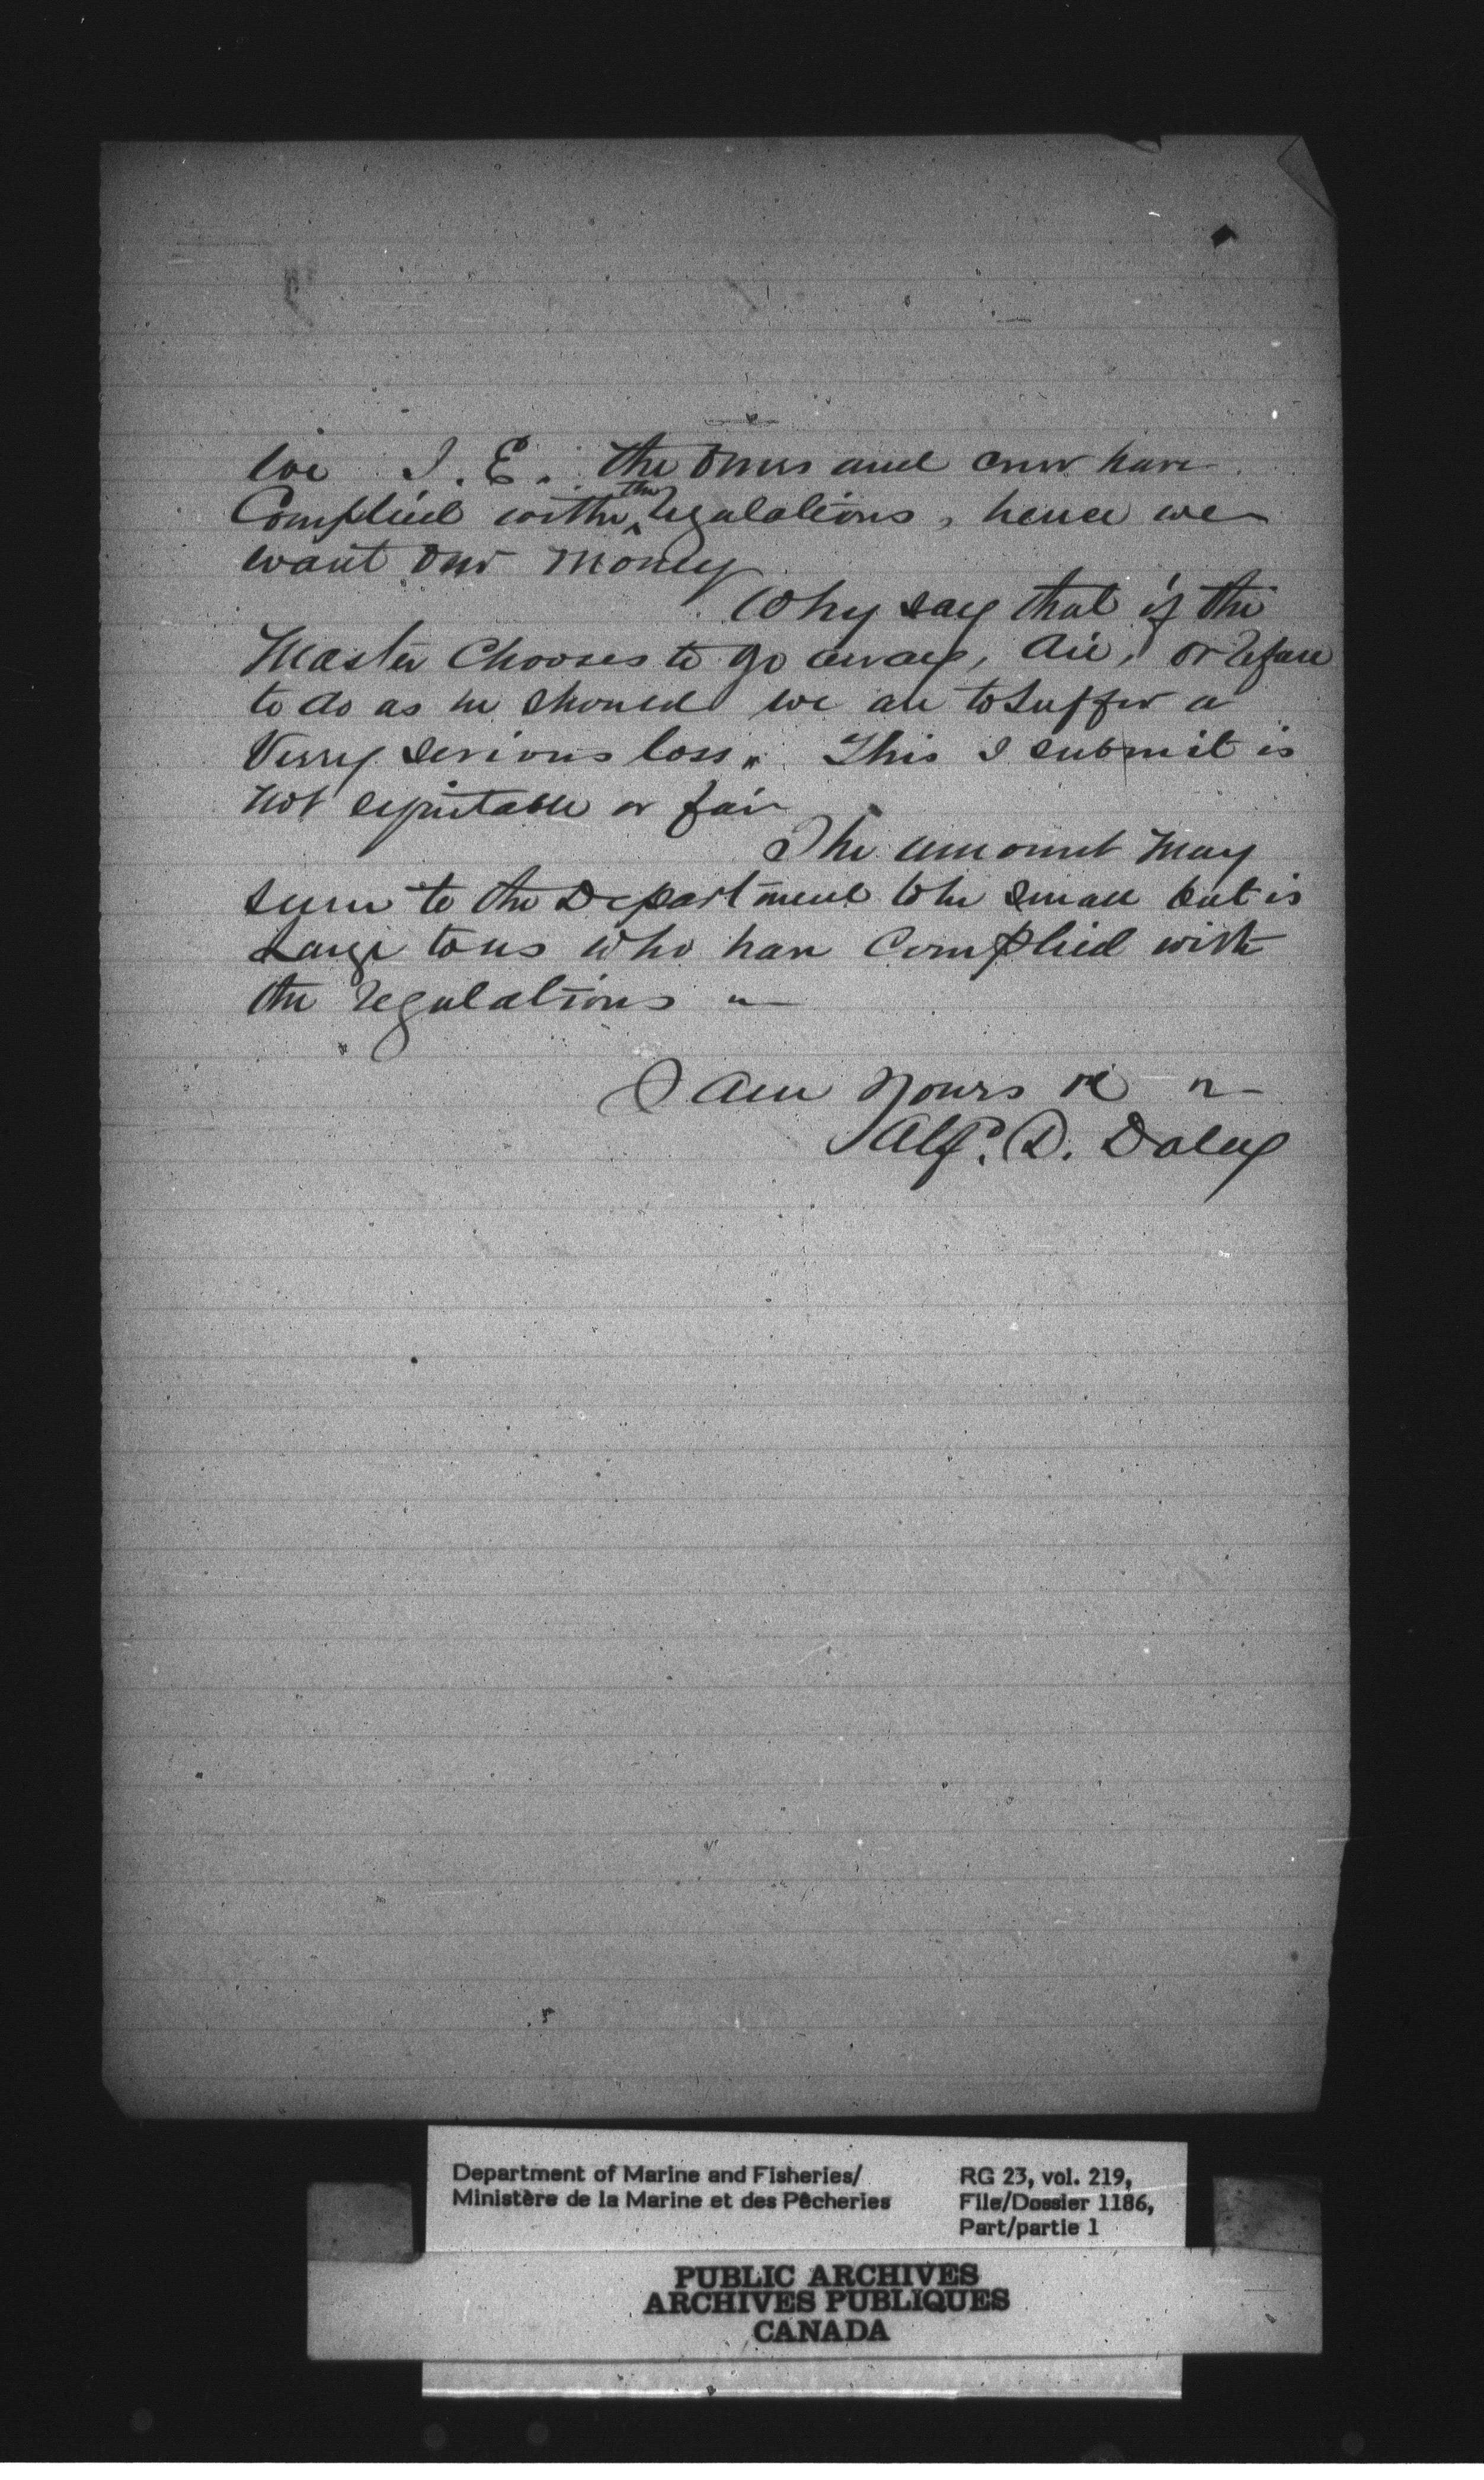 we I.E. the owners and crew have
Complied with the regulations, hence we
want our money
Why say that if the
Master Chooses to go away, die, or refuse
to do as he should we are to suffer a
Verry serious loss. This I submit is
not equitable or fair
The amount May
seem to the Department to be small but is
Large to us who have Complied with
the regulations
I am yours
Alf. D. Daley
Department of Marine and Fisheries/
Ministère de la Marine et des Pêcheries
RG 23, vol. 219,
File/Dossier 1186,
Part/partie 1
PUBLIC ARCHIVES
ARCHIVES PUBLIQUES
CANADA